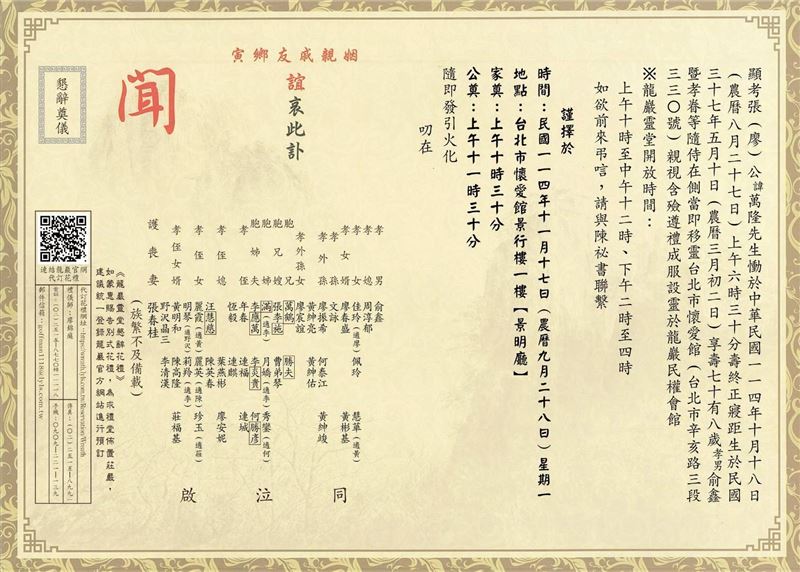 顯考張（廖）公諱萬隆先生慟於中華民國一一四年十月十八日
（農曆八月二十七日）上午六時三十分壽終正寢距生於民國
三十七年五月十日（農曆三月初二日）享壽七十有八歲孝男俞鑫
暨孝眷等隨侍在側當即移靈台北市懷愛館（台北市辛亥路三段
三三〇號）親視含殮遵禮成服設靈於龍巖民權會館
※龍巖靈堂開放時間：
上午十時至中午十二時、下午二時至四時
如欲前來弔唁，請與陳祕書聯繫
謹擇於
時間：民國一一四年十一月十七日（農曆九月二十八日）星期一
地點：台北市懷愛館景行樓一樓【景明廳】
家奠：上午十時三十分
公奠：上午十一時三十分
隨即發引火化
叨在
姻親戚友鄉寅
誼哀此訃
聞
懇辭奠儀
孝男 俞鑫
孝媳 周淳郁
孝女 佳玲（適黃） 佩玲 慧華（適黃）
孝婿 廖春盛 黃彬基
孝孫 文詠
孝外孫 廖振希 何泰江
黃紳亮 黃紳佑 黃紳峻
孝外孫女 廖宸誼
胞兄 萬鶴 勝夫
胞兄嫂 張李地 曹弟琴
胞姊 滿（適李） 月嬌（適李） 秀鑾（適何）
胞姊夫 李應萬 李炎貴 何勝彥
孝姪 年春 連福 連城
恆毅 連麒
孝姪媳 汪慧慈 葉燕彬 廖安妮
陳英春
孝姪女 麗霞（適黃） 麗英（適陳） 珍玉（適莊）
明琴（適野沢） 莉羚（適李）
孝姪女婿 黃明和 陳高隆 莊福基
野沢晶三 李清漢
護喪妻 張春桂
（族繁不及備載）
同
泣
啟
《龍巖靈堂懇辭花禮》
如蒙惠賜告別式花禮，為求禮堂佈置莊嚴，
建議統一登錄龍巖官方網站進行預訂
連結龍巖官網
代訂花禮